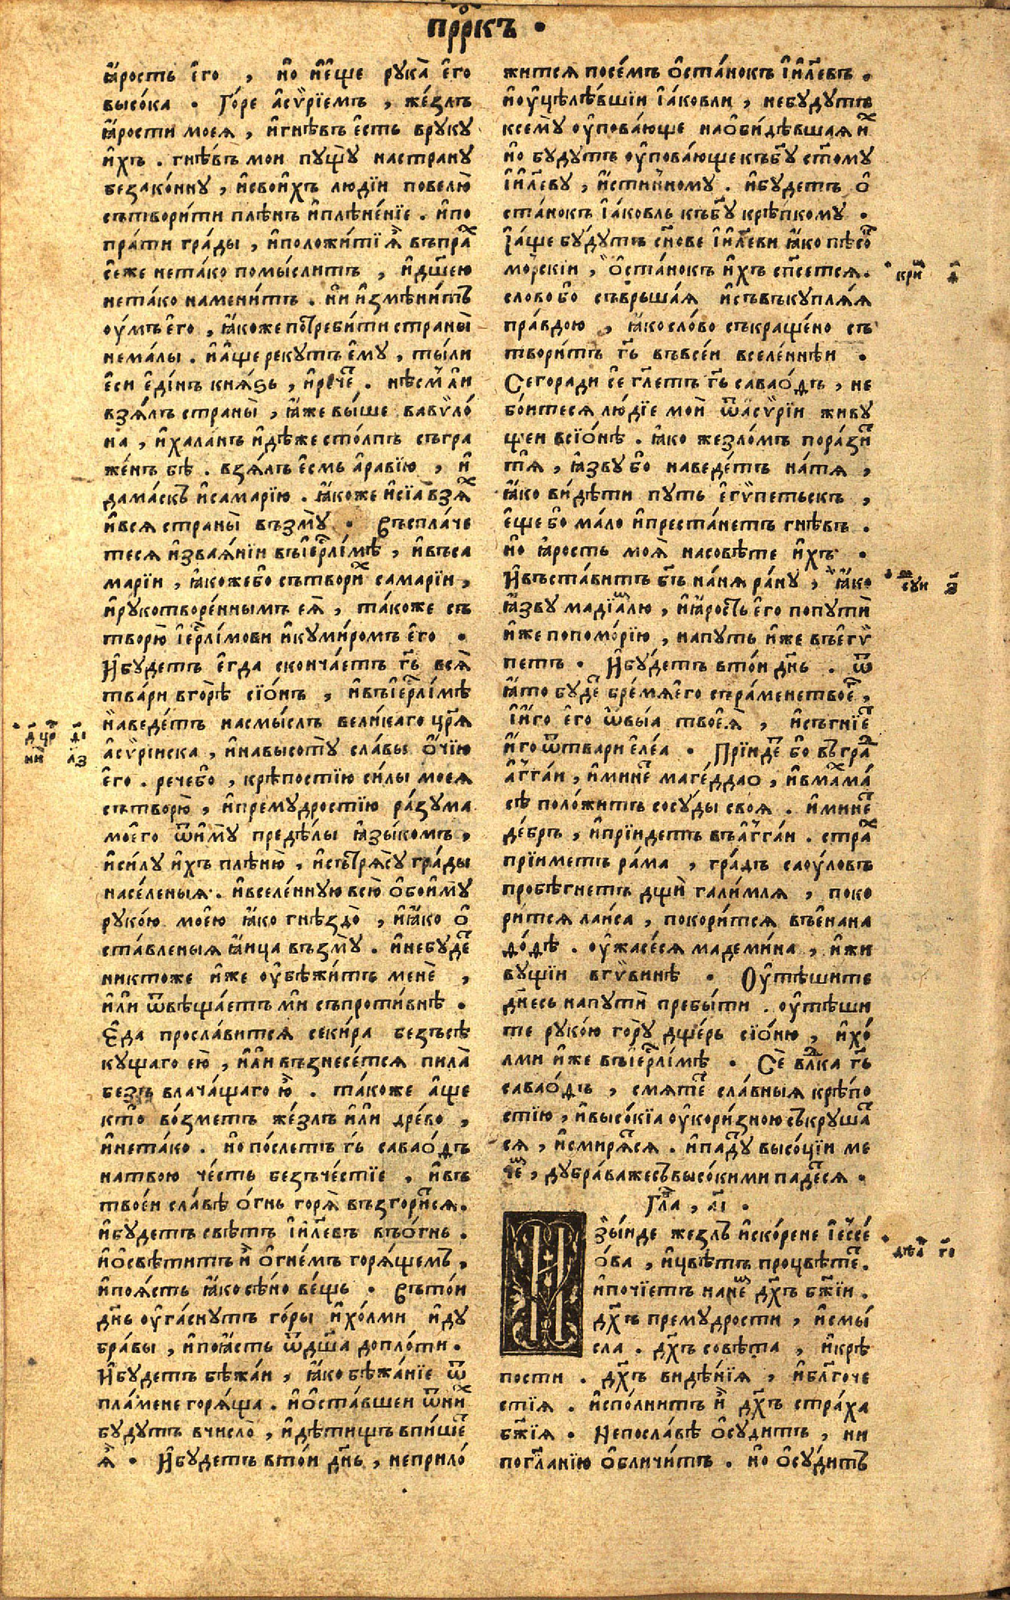 прⷪ҇ркъ ·
ꙗ҆рость є҆го , но и҆є҆ще рука̀ є҆го
высо́ка · Го́ре а҆сѷрїемъ , же́злъ
ꙗ҆рости моеѧ , и҆гнѣвъ є҆сть вруку
и҆хъ . гнѣвъ мои пущу̀ настрану
безаконну , и҆свои҆хъ людїи повелю̀
сътвори́ти плѣнъ и҆плѣне́нїе . и҆по
прати гра́ды , и҆положи́тїѧ҆̀ въпраⷯ
се́же нетако помы́слитъ , и҆дш҃ею
нетако намени́тъ . но̀ и҆змѣни́тъ
оу҆мъ є҆го , ꙗ҆коже потреби́ти страны̀
нема́лы . и҆а҆ще рекутъ є҆му , ты́ли
є҆си є҆ди́нъ кнѧ́ѕь , и҆рече́ⷮ . нѣсмь ли
взѧ́лъ страны̀ , ꙗ҆́же вы́ше вавѷло́
на , и҆хала́нъ и҆дѣ́же сто́лпъ съгра
же́нъ бѣ̀ . взѧ́лъ є҆смь а҆равїю , и҆
дама́скъ и҆самарїю . ꙗ҆коже и҆сїа̀ взѧⷯ
и҆всѧ страны̀ възму̀ · Въспла́че
тесѧ и҆зваѧ́нїи въі҆ерⷭ҇ли́мѣ , и҆въса
марїи , ꙗ҆коже бо сътвориⷯ самарїи ,
и҆рукотворе́ннымъ єѧ̀ , та́коже съ
творю̀ і҆ерⷭ҇ли́мови и҆куми́ромъ є҆го ·
И҆бу́детъ є҆гда сконча́етъ гь҃ всѧ̀
твари вгорѣ̀ сїѡ́нъ , и҆въі҆ерⷭ҇ли́мѣ
наведе́тъ насмыслъ вели́каго цр҃ѧ
а҆сѷрїиска , и҆навысоту̀ сла́вы о҆чїю
є҆го . рече́бо , крѣпостїю си́лы моеѧ
сътворю̀ , и҆премудростїю ра́зума
моего ѿи҆му̀ предѣ́лы ꙗ҆зы́комъ ,
и҆си́лу и҆хъ плѣню̀ , и҆сътрѧсу̀ гра́ды
насе́леныѧ . и҆вселе́нную всю̀ ѻ҆бои҆му̀
руко́ю мое́ю ꙗ҆ко гнѣздо̀ , и҆ꙗ҆ко ѻ҆
ста́вленыѧ ꙗ҆ица възму̀ . и҆небу́деⷮ
никтоже и҆же оу҆бѣжи́тъ менѐ ,
и҆лѝ ѿвѣща́етъ мѝ съпроти́внѣ .
Є҆да просла́витсѧ секи́ра безъсѣ
ку́щаго є҆ю̀ , и҆лѝ възнесе́тсѧ пила̀
безъ влача́щаго ю̀ . та́коже а҆ще
кто̀ во́зметъ же́злъ и҆лѝ дре́во ,
и҆нетако . но по́слетъ гь҃ савао́ѳъ
натвою че́сть безъче́стїе , и҆въ
твоѐи сла́вѣ ѻ҆гнь горѧ̀ възгори́тсѧ .
и҆бу́детъ свѣтъ і҆и҆л҃евъ въѻ҆гнь .
и҆ѻ҆свѣти́тъ и҆̀ ѻ҆гне́мъ горѧ́щемъ ,
и҆поѧ́стъ ꙗ҆ко сѣ́но ве́щь · Вътои
дн҃ь оу҆га́снутъ го́ры и҆хо́лми и҆ду
бра́вы , и҆поꙗ҆стъ ѿдш҃а допло́ти .
И҆бу́детъ бѣжа́и , ꙗ҆ко бѣжа́нїе ѿ
пла́мене горѧ́ща . и҆ѻ҆ста́вшеи ѿниⷯ
бу́дутъ вчисло̀ , и҆дѣ́тищъ впи́шеⷮ
ѧ҆̀ · И҆бу́детъ втои дн҃ь , неприло́
жи́тсѧ посе́мъ ѻ҆ста́нокъ і҆и҆л҃евъ .
и҆оу҆цѣлѣ́вшїи і҆а́ковли , небу́дутъ
ксему̀ оу҆пова́юще наѻ҆би́дѣвшаѧ иⷯ
но бу́дутъ оу҆пова́юще къбг҃у ст҃ому
і҆и҆л҃еву , и҆стинному . и҆бу́детъ ѻ҆
ста́нокъ і҆а́ковль къбг҃у крѣ́пкому .
І҆а҆ще бу́дутъ сн҃ове і҆и҆л҃еви ꙗ҆ко пѣсоⷦ
морскїи , ѻ҆ста́нокъ и҆хъ сп҃сетсѧ .
слово бо съврьша́ѧ и҆съвъкуплѧ́ѧ
пра́вдою , ꙗ҆ко сло́во съкраще́но съ
твори́тъ гь҃ въвсе́и вселе́ннѣи .
Сегора́ди сѐ гл҃етъ гь҃ савао́ѳъ , не
бо́итесѧ лю́дїе мои̑ ѿа҆сѷрїи живу
щеи всїо́нѣ . ꙗ҆ко жезло́мъ порази́
тѧ , ꙗ҆зву бо наведе́тъ на́тѧ ,
ꙗ҆ко ви́дѣти путь є҆гѷпетьскъ ,
є҆ще бо ма́ло и҆преста́нетъ гнѣвъ .
но ꙗ҆рость моѧ̀ насовѣ́те и҆хъ .
И҆въста́витъ бг҃ъ нанѧ ра́ну , ꙗ҆ко
ꙗ҆зву мадїа́млю , и҆ꙗ҆рость є҆го пути́
и҆же попомо́рїю , напуть и҆же въє҆гѷ
петъ . И҆бу́детъ втои дн҃ь . ѿ
ꙗ҆то бу́деⷮ бре́мѧ є҆го съра́мене твоеⷢ ,
и҆и҆го є҆го ѿвы́а твое́ѧ , и҆съгнїеⷮ
и҆го ѿтвари є҆леа . Прїи́деⷮ бо въграⷣ
а҆гга́и , и҆мине́ⷮ маге́ддао , и҆вмаⷯма́
сѣ поло́житъ сосу́ды своѧ . и҆мине́ⷮ
де́брь , и҆прїи́детъ въа҆гга́и . страⷯ
прїи́метъ ра́ма , гра́дъ саоу́ловъ
пробѣ́гнетъ дщѝ гали́млѧ , поко
ри́тсѧ лаи́са , покори́тсѧ въє҆нана
ѳо́ѳѣ . оу҆жасе́сѧ мадеми́на , и҆жи
вущїи вгѷвинѣ . Оу҆тѣшите
дн҃есь напути́ пребы́ти . оу҆тѣши
те руко́ю го́ру дще́рь сїо́ню , и҆хо́
лми и҆же въі҆ерⷭ҇ли́мѣ . Сѐ влⷣка гь҃
савао́ѳъ , смѧте́ⷮ сла́вныѧ крѣ́по
стїю , и҆высо́кїа оу҆кори́зною съкруша́ⷮ
сѧ , и҆смирѧ́тсѧ . и҆паду́ⷮ высо́цїи ме
че́мъ , дубра́ва же съвысо́кими паде́тсѧ .
Глⷡ҇а , а҃і .
Изы́иде же́злъ и҆ско́рене і҆ессе́
о́ва , и҆цвѣ́тъ процвѣте́ⷮ .
и҆почїетъ нане́мъ дх҃ъ бж҃їи .
дх҃ъ прему́дрости , и҆смы́
сла . дх҃ъ совѣ́та , и҆крѣ
пости . дх҃ъ видѣ́нїѧ , и҆бл҃гоче
стїѧ . и҆спо́лнитъ и҆̀ дх҃ъ стра́ха
бж҃їѧ . Непосла́вѣ ѻ҆су́дитъ , ни
погл҃анїю ѻ҆бличи́тъ . но ѻ҆су́дитъ